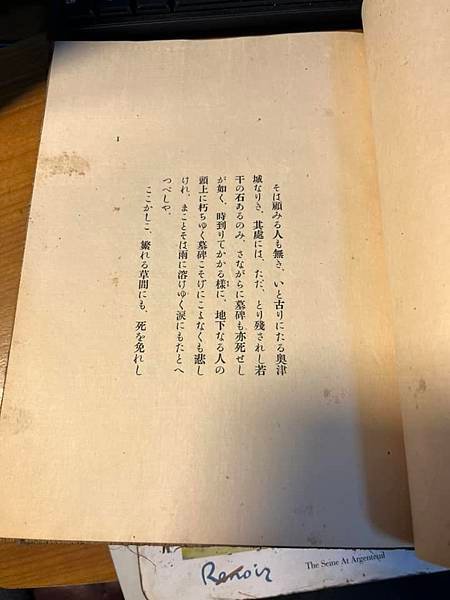 そは顧みる人も無き、いと古りにたる奥津
城なりき、其處には、ただ、とり殘されし若
干の石あるのみ、さながらに墓碑も亦死せし
が如く、時到りてかかる樣に、地下なる人の
頭上に朽ちゆく墓碑こそげにこよなくも悲し
けれ、まことそは雨に溶けゆく涙にもたとへ
つべしや、
ここかしこ、繁れる草間にも、死を免れし
1
Renoir
The Seine At Argenteuil